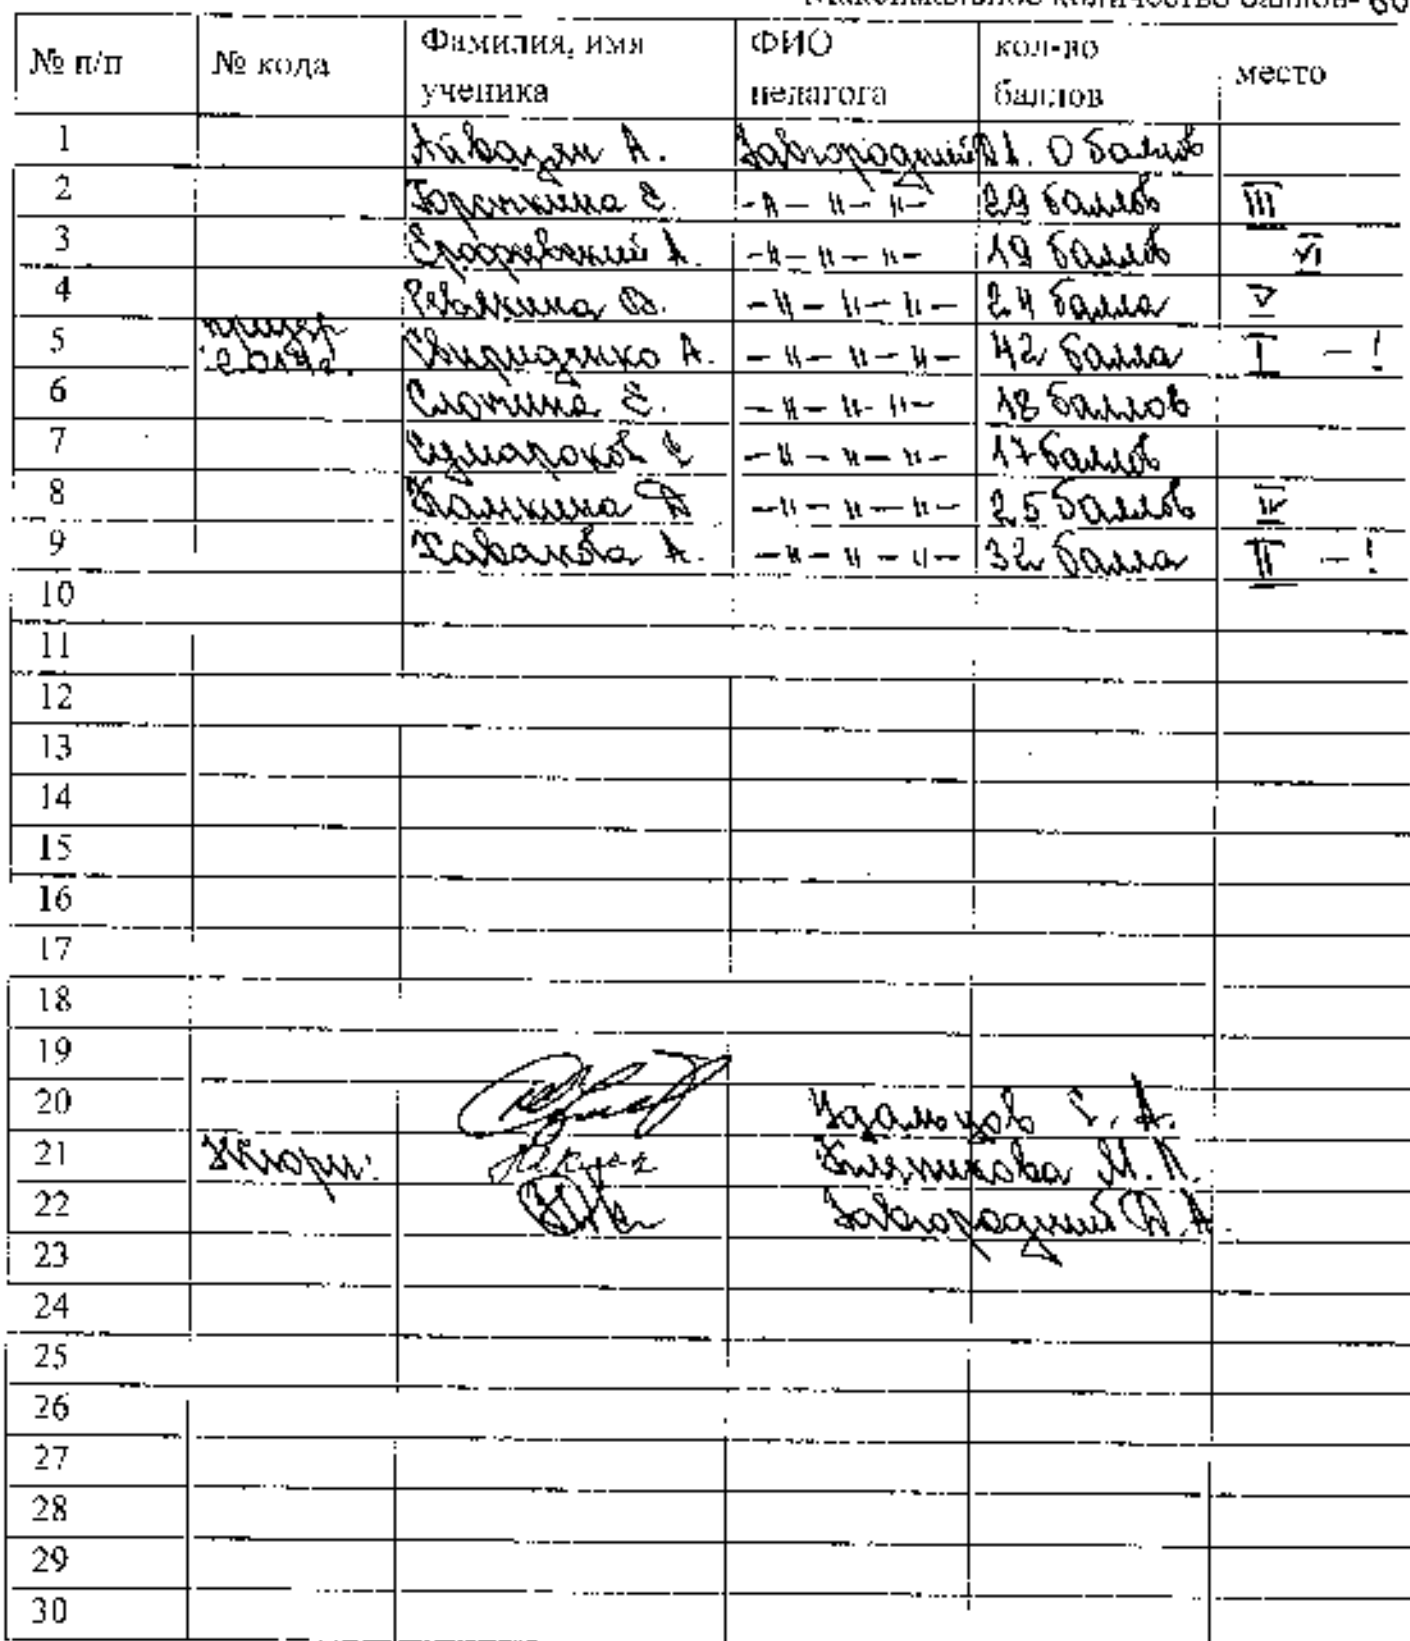 Максимальное количество баллов- 60
№ п/п № кода Фамилия, имя ученика ФИО педагога кол-во баллов место
1 Айвазян А. Завгородний Д.А. 0 баллов
2 Боронкина Е. -"-"-"- 29 баллов III
3 А. -"-"-"- 19 баллов VI
4 Ревякина -"-"-"- 24 балла V
5 призёр 2014г. Свириденко А. -"-"-"- 42 балла I - !
6 Слонина Е. -"-"-"- 18 баллов
7 Сумароков С -"-"-"- 17 баллов
8 -"-"-"- 25 баллов IV
9 Хаванова А. -"-"-"- 32 балла II - !
10
11
12
13
14
15
16
17
18
19
20 Удальцов А.
21 Жюри: М.
22 Завгородний Д.А.
23
24
25
26
27
28
29
30